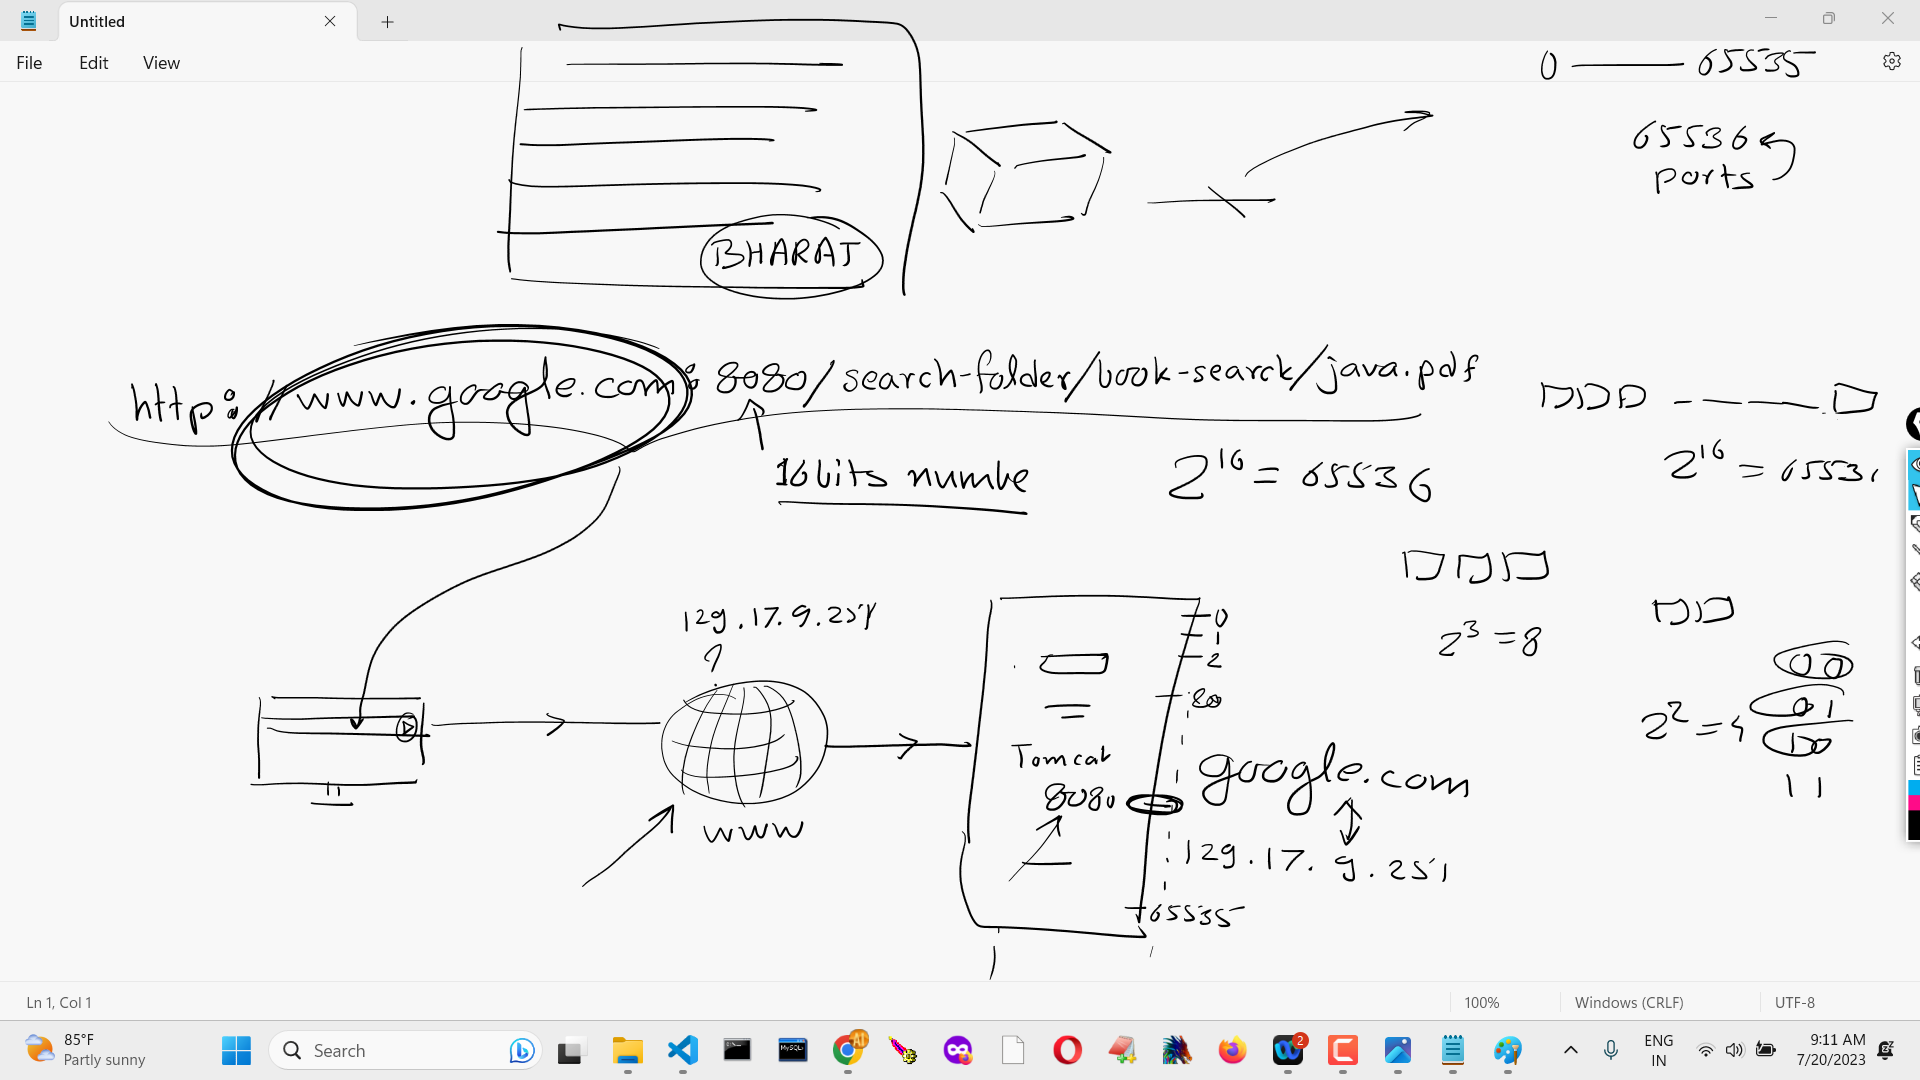 Untitled
File Edit View
0 — 65535
65536
ports
BHARAT
http://www.google.com:8080/search-folder/book-search/java.pdf
16 bits numbe
2^16 = 65536
2^16 = 6553
2^3 = 8
129.17.9.251
?
0
1
2
80
0 0
0 1
2^2 = 4
1 0
1 1
Tomcat
8080
google.com
www
129.17.9.251
65535
Ln 1, Col 1
100%
Windows (CRLF)
UTF-8
85°F
Partly sunny
Search
MySQL
AI
2
ENG
IN
9:11 AM
7/20/2023